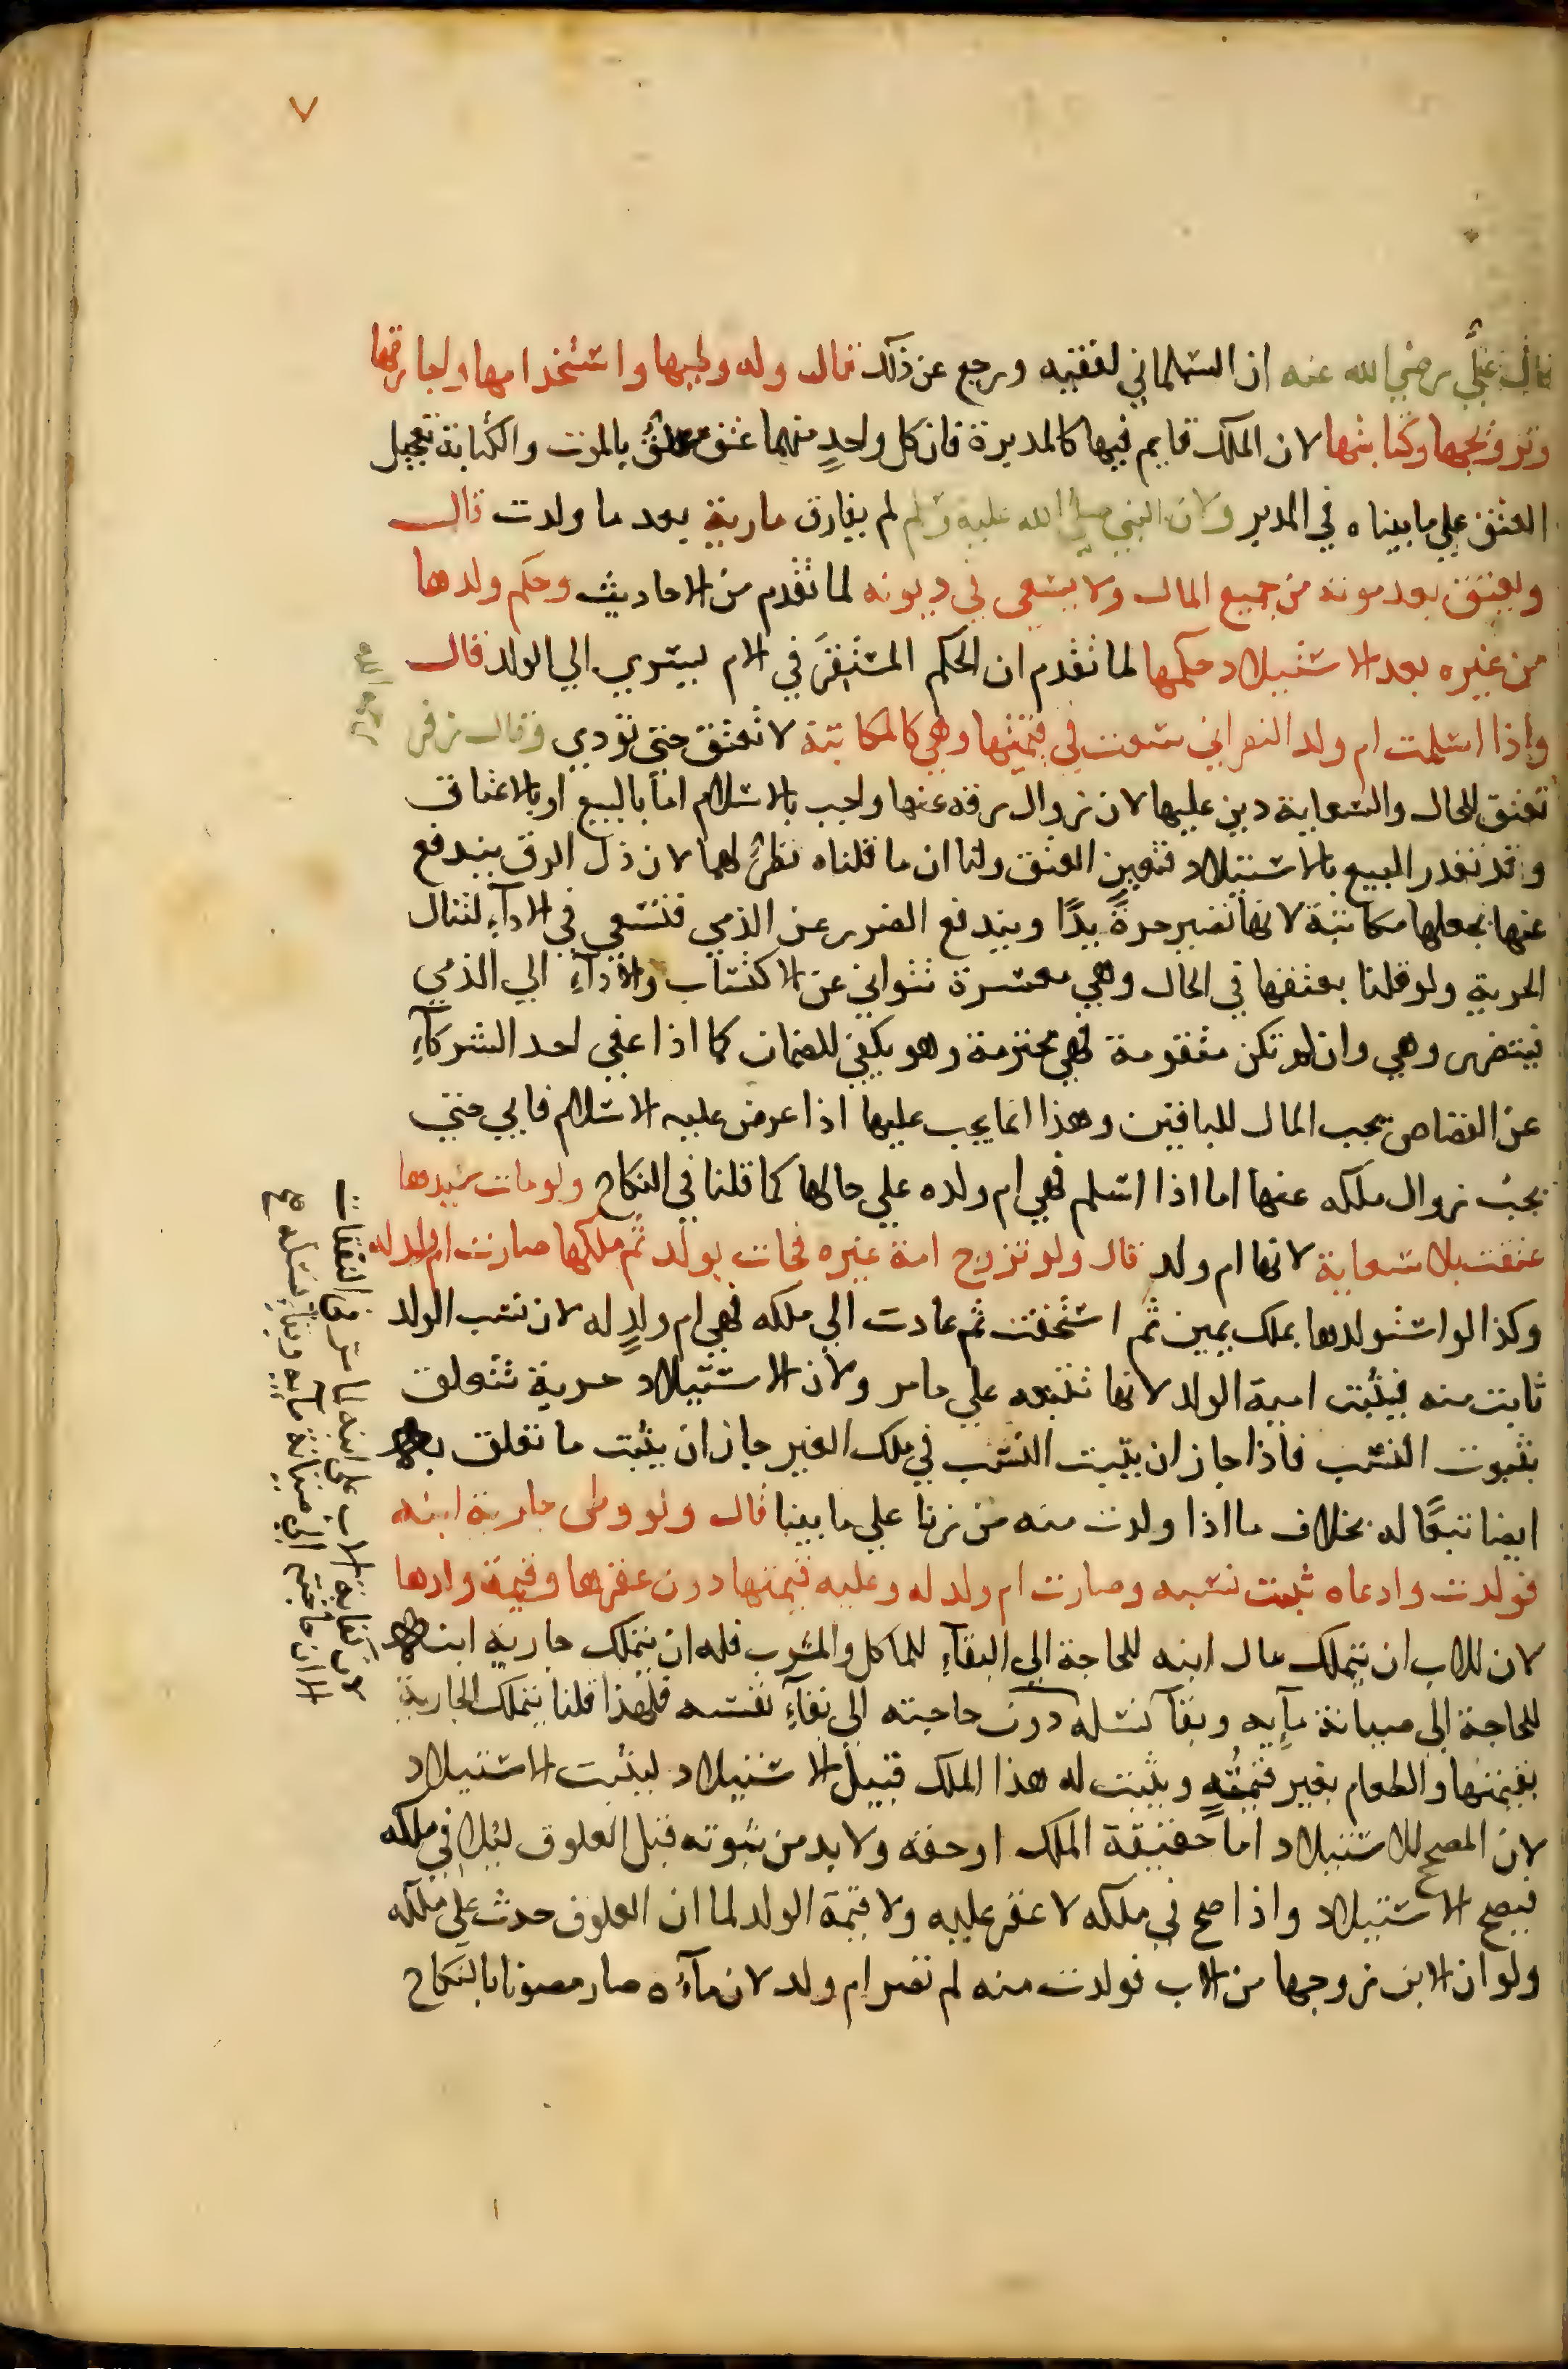 ٧
قال علي رضي الله عنه ان السلماني لفقيه ورجع عن ذلك قال وله وطيها واستخدامها واجارتها
وتزويجها وكتابتها لان الملك قايم فيها كالمدبرة فان كل واحدٍ منهما عتق معلق بالموت والكتابة تعجيل
العتق علي ما بيناه في المدبر ولان النبي صلي الله عليه وسلم لم يفارق مارية بعد ما ولدت قال
وتعتق بعد موته من جميع المال ولا يسعي في ديونه لما تقدم من الاحاديث وحكم ولدها
من غيره بعد الاستيلاد حكمها لما تقدم ان الحكم المستقر في الام يسري الي الولد قال
واذا اسلمت ام ولد النصراني سعت في قيمتها وهي كالمكاتبة لا تعتق حتي تؤدي وقال زفر
رحمه الله
تعتق للحال والسعاية دين عليها لان زوال رقه عنها واجب بالاسلام اما بالبيع او بالاعتاق
وقد تعذر البيع بالاستيلاد فتعين العتق ولنا ان ما قلناه نظرٌ لهما لان ذل الرق يندفع
عنها بجعلها مكاتبة لانها تصير حرةً يدًا ويندفع الضرر عن الذمي فتسعي في الادآءِ لتنال
الحرية ولو قلنا بعتقها في الحال وهي معسرة تتواني عن الاكتساب والادآءِ الي الذمي
فيتضرر وهي وان لم تكن متقومة فهي محترمة وهو يكفي للضمان كما اذا عفي احد الشركآءِ
عن القصاص يجب المال للباقين وهذا انما يجب عليها اذا عرض عليه الاسلام فابي حتي
يجب زوال ملكه عنها اما اذا اسلم فهي ام ولده علي حالها كما قلنا في النكاح ولو مات سيدها
عتقت بلا سعاية لانها ام ولد قال ولو تزوج امة غيره فجات بولد ثم ملكها صارت ام ولد له
وكذا لو استولدها بملك يمين ثم استحقت ثم عادت الي ملكه فهي ام ولدٍ له لان نسب الولد
ثابت منه فيثبت امية الولد لانها تتبعه علي ما مر ولان الاستيلاد حرية تتعلق
بثبوت النسب فاذا جاز ان يثبت النسب في ملك الغير جاز ان يثبت ما تعلق به
ايضا تبعًا له بخلاف ما اذا ولدت منه من زنا علي ما بينا قال ولو وطي جارية ابنه
فولدت وادعاه ثبت نسبه وصارت ام ولد له وعليه قيمتها دون عقرها وقيمة ولدها
لان للاب ان يتملك مال ابنه للحاجة الي البقآءِ للماكل والمشرب فله ان يتملك جارية ابنه
للحاجة الي صيانة مآيه وبقآ نسله دون حاجته الي بقآءِ نفسه فلهذا قلنا يتملك الجارية
بقيمتها والطعام بغير قيمةٍ ويثبت له هذا الملك قبيل الاستيلاد ليثبت الاستيلاد
لان المصحح للاستيلاد اما حقيقة الملك او حقه ولا بد من ثبوته قبل العلوق ليلاقي ملكه
فيصح الاستيلاد واذا صح في ملكه لا عقر عليه ولا قيمة الولد لما ان العلوق حدث علي ملكه
ولو ان الابن زوجها من الاب فولدت منه لم تصر ام ولد لان مآءه صار مصونا بالنكاح
لان كفاية الاب علي ابنه لما مر في النفقات
الا ان حاجته الي صيانة مايه وبقآ نسله